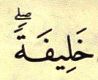 خَلِيفَةًۖ